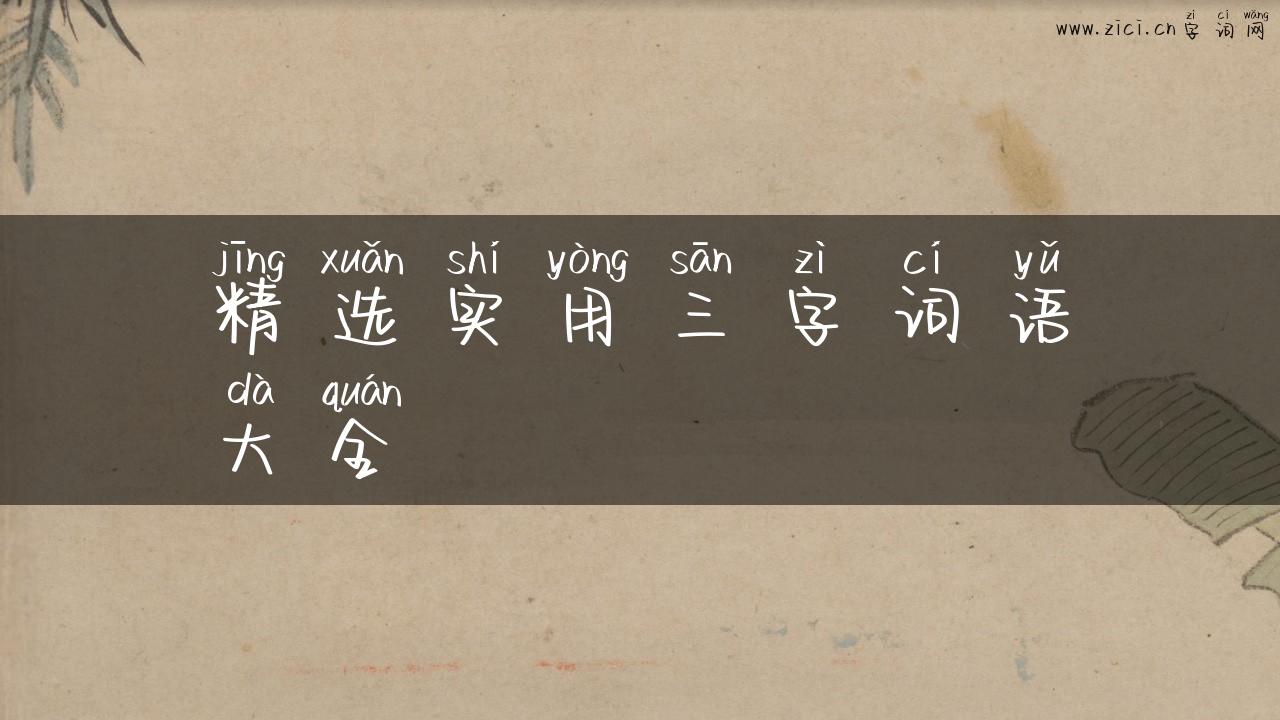 zì cí wǎng
www.zici.cn 字词网
jīng xuǎn shí yòng sān zì cí yǔ
精选实用三字词语
dà quán
大全